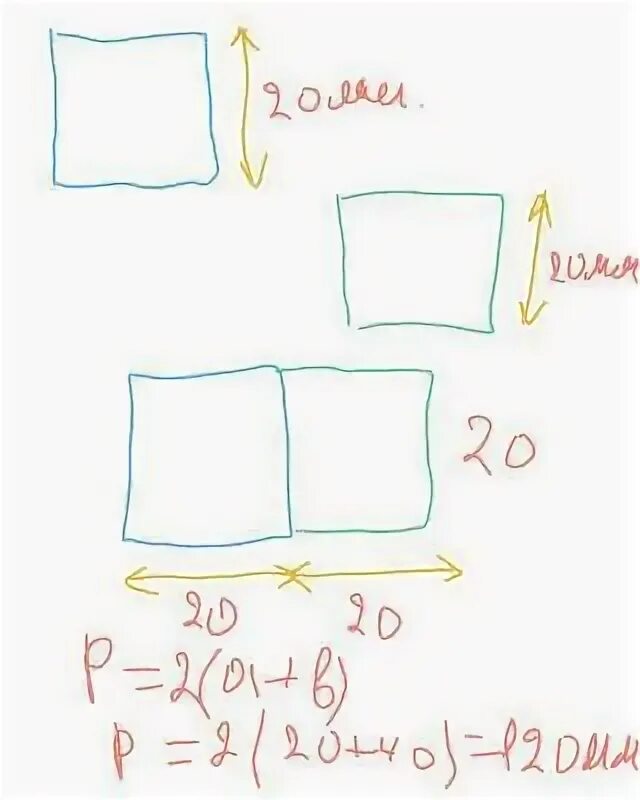 20мм.
20мм
20
20 20
P = 2(a+b)
P = 2(20+40)=120мм